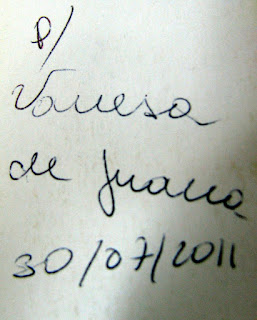 P/
Vanesa
de Juana
30/07/2011